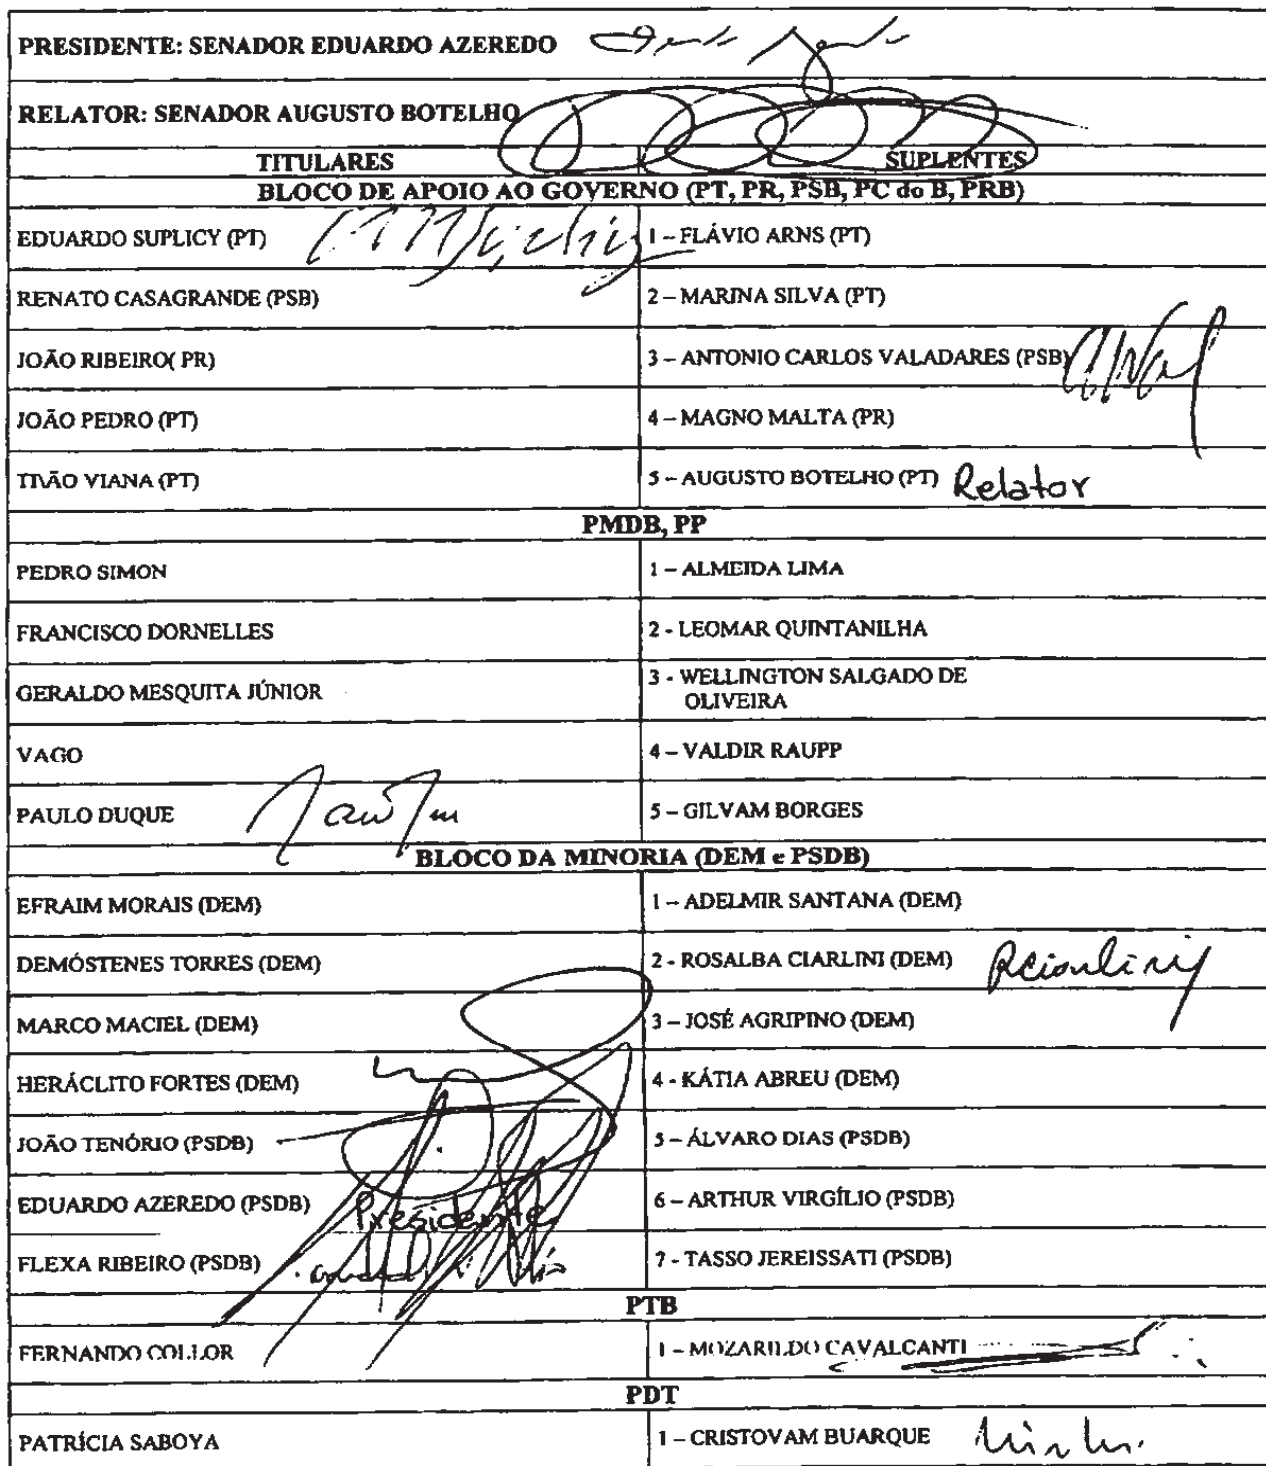 PRESIDENTE: SENADOR EDUARDO AZEREDO
RELATOR: SENADOR AUGUSTO BOTELHO
TITULARES SUPLENTES
BLOCO DE APOIO AO GOVERNO (PT, PR, PSB, PC do B, PRB)
EDUARDO SUPLICY (PT) 1 – FLÁVIO ARNS (PT)
RENATO CASAGRANDE (PSB) 2 – MARINA SILVA (PT)
JOÃO RIBEIRO( PR) 3 – ANTONIO CARLOS VALADARES (PSB)
JOÃO PEDRO (PT) 4 – MAGNO MALTA (PR)
TIÃO VIANA (PT) 5 – AUGUSTO BOTELHO (PT) Relator
PMDB, PP
PEDRO SIMON 1 – ALMEIDA LIMA
FRANCISCO DORNELLES 2 - LEOMAR QUINTANILHA
GERALDO MESQUITA JÚNIOR 3 - WELLINGTON SALGADO DE
OLIVEIRA
VAGO 4 – VALDIR RAUPP
PAULO DUQUE 5 – GILVAM BORGES
BLOCO DA MINORIA (DEM e PSDB)
EFRAIM MORAIS (DEM) 1 – ADELMIR SANTANA (DEM)
DEMÓSTENES TORRES (DEM) 2 - ROSALBA CIARLINI (DEM)
MARCO MACIEL (DEM) 3 – JOSÉ AGRIPINO (DEM)
HERÁCLITO FORTES (DEM) 4 - KÁTIA ABREU (DEM)
JOÃO TENÓRIO (PSDB) 5 – ÁLVARO DIAS (PSDB)
EDUARDO AZEREDO (PSDB) Presidente 6 – ARTHUR VIRGÍLIO (PSDB)
FLEXA RIBEIRO (PSDB) 7 - TASSO JEREISSATI (PSDB)
PTB
FERNANDO COLLOR 1 – MOZARILDO CAVALCANTI
PDT
PATRÍCIA SABOYA 1 – CRISTOVAM BUARQUE